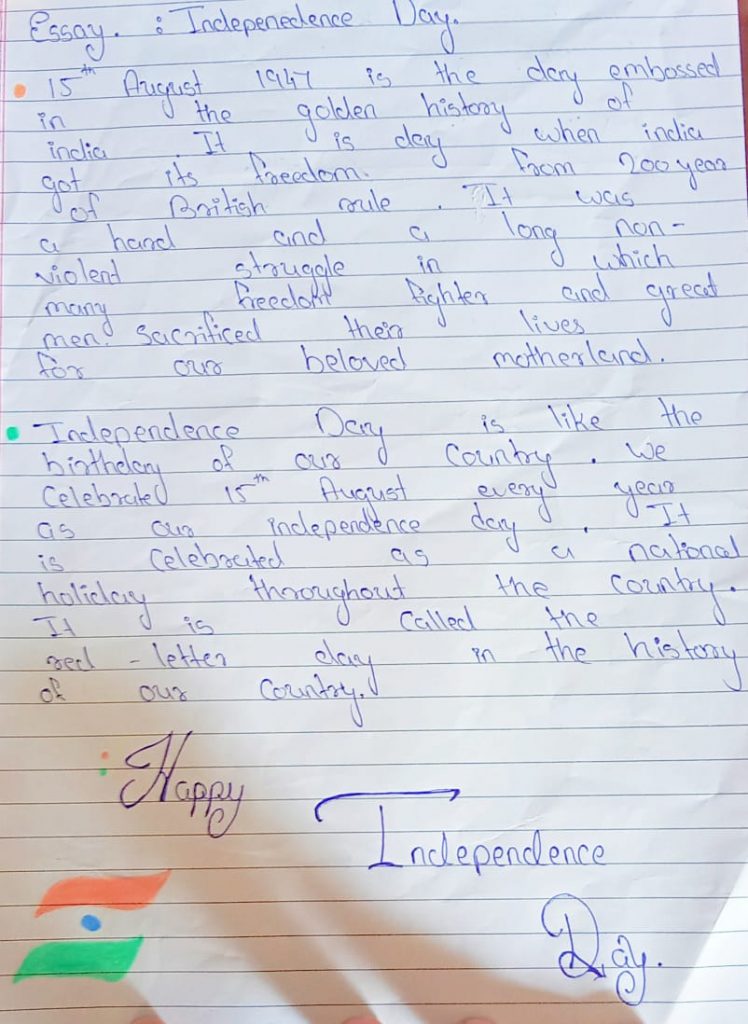 Essay. : Indepenedence Day.
15th August 1947 is the day embossed
in the golden history of
india It is day when india
got its freedom. from 200 year
of British rule. It was
a hard and a long non-
violent struggle in which
many freedom fighter and great
men. Sacrificed their lives
for our beloved motherland.
Independence Day is like the
birthday of our Country. We
Celebrated 15th August every year
as our independence day. It
is Celebrated as a national
holiday throughout the Country.
It is Called the
red-letter day in the history
of our Country.
Happy
Independence
Day.